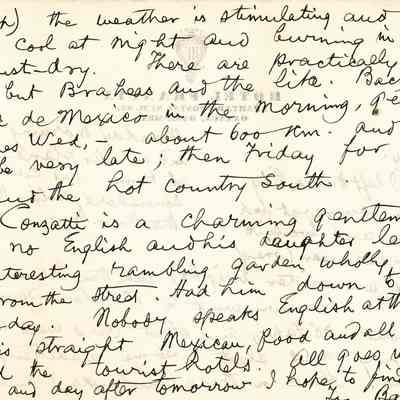 ) the weather is stimulating and
cool at night and burning in
ust-dry. There are practically
but Braheas and the like. Bac
de Mexico in the morning,
es Wed, - about 600 km. and
be very late; then Friday for
and the hot country South.
Conzatti is a charming gentlem
no English and his daughter le
teresting rambling garden wholly
from the street. Had him down to
-day. Nobody speaks English at th
is straight Mexican, food and all
d the tourist hotels. All goes w
and day after tomorrow I hope to find